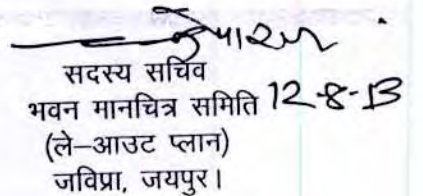 सदस्य सचिव
भवन मानचित्र समिति 12-8-13
(ले-आउट प्लान)
जविप्रा, जयपुर।